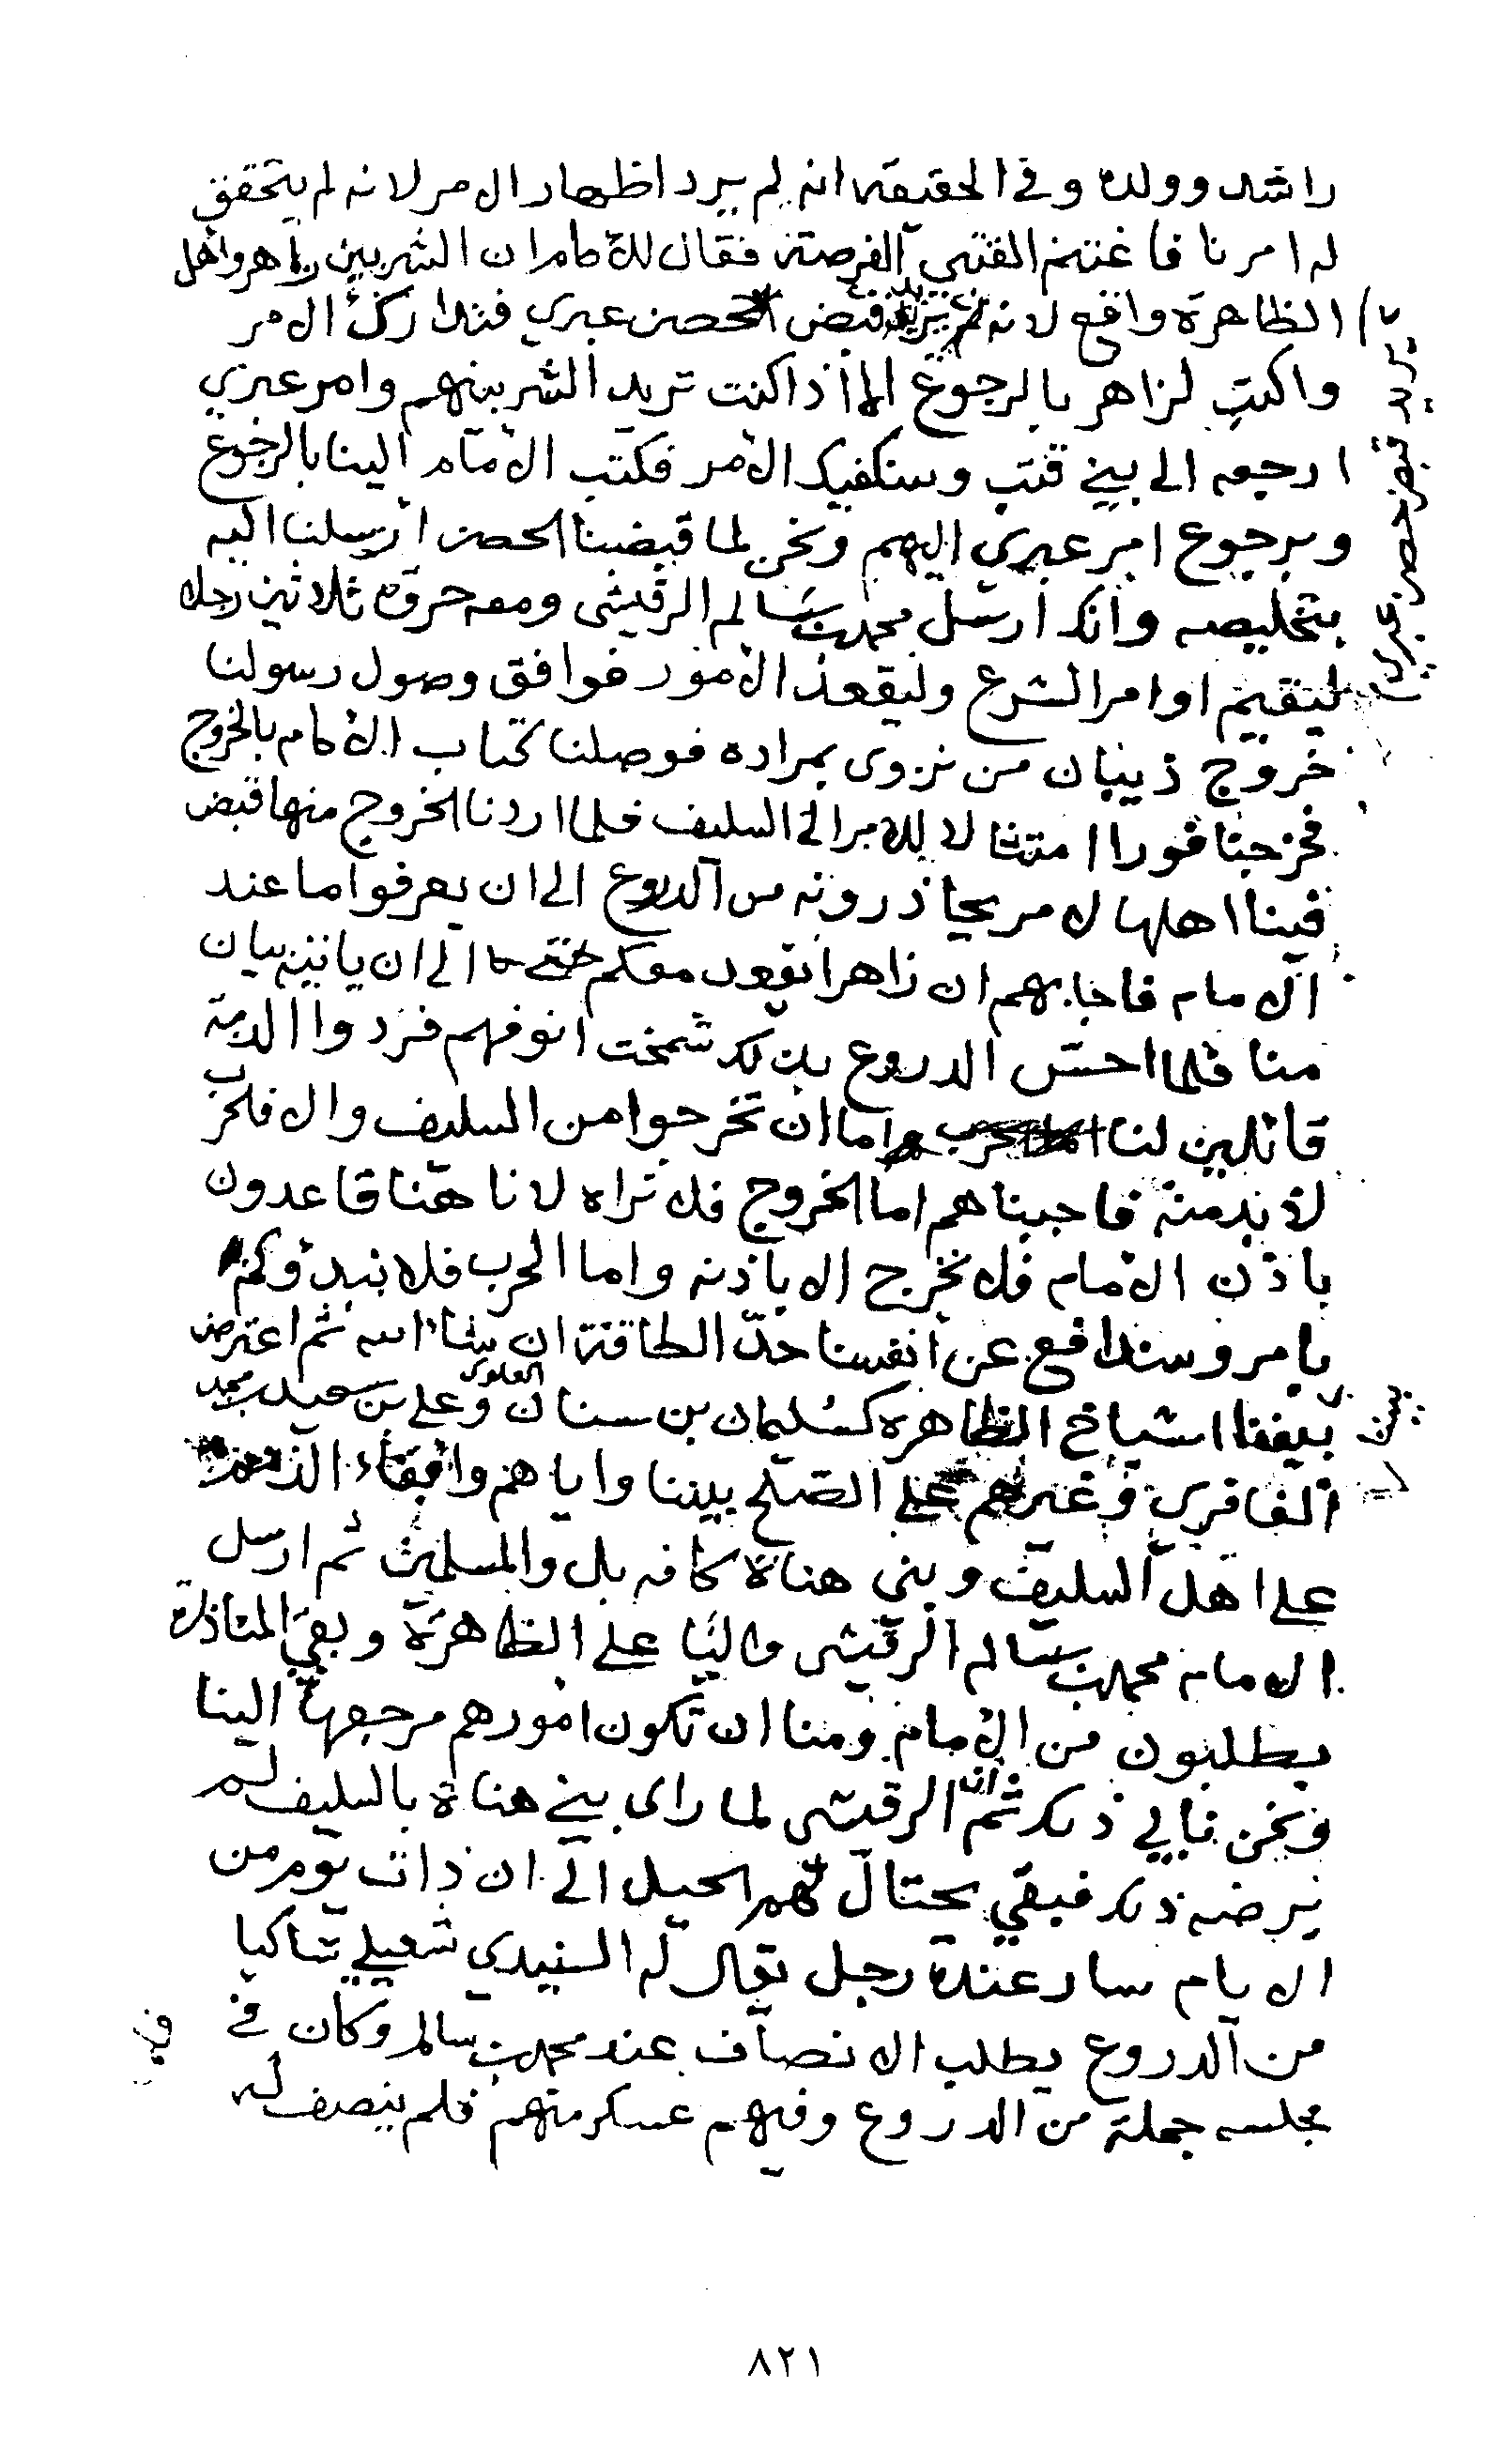 راشد وولده وفي الحقيقة انه لم يرد اظهار الامر لانه لم يتحقق
له امرنا فاغتنم القتبي الفرصة فقال للامام ان الشر بين زاهر واهل
الظاهرة واقع لانه قبض الحصن عبري فتدارك الامر
واكتب لزاهر بالرجوع اما اذا كنت تريد الشر بينهم وامر عبري
ارجعه الى بني قتب وسنكفيك الامر فكتب الامام الينا بالرجوع
وبرجوع امر عبري اليهم ونحن لما قبضنا الحصن ارسلنا اليه
بتخليصه وانك ارسل محمد بن سالم الرقيشي ومعه حروة ثلاثين رجلا
ليقيم اوامر الشرع وليقعد الامور فوافق وصول رسولنا
خروج ذيبان من نزوى بمراده فوصلنا كتاب الامام بالخروج
فخرجنا فورا امتثالا للامر الى السليف فلما اردنا الخروج منها قبض
فينا اهلها لامر يحاذرونه من الدروع الى ان يعرفوا ما عند
الامام فاجابهم ان زاهرا يقعد معكم الى ان ياتيه بيان
منا فلما احس الدروع بذلك شمخت انوفهم فردوا الدية
قائلين لنا اما ان تخرجوا من السليف والا فالحرب
لا بد منه فاجبناهم اما الخروج فلا تراه لانا هنا قاعدون
باذن الامام فلا نخرج الا باذنه واما الحرب فلا نبدؤكم
بامر وسندافع عن انفسنا حد الطاقة ان شاء الله ثم اعترض
بيننا اشياخ الظاهرة كسليمان بن سنان العلوي وعلي بن سعيد بن محمد
الغافري وغيرهم على الصلح بيننا واياهم وابقاء
على اهل السليف وبني هناة كافه بل والمسلمين ثم ارسل
الامام محمد بن سالم الرقيشي واليا على الظاهرة وبقي المناذرة
يطلبون من الامام ومنا ان تكون امورهم مرجعها الينا
ونحن نابى ذلك ثم ان الرقيشي لما راى بني هناة بالسليف لم
يرضه ذلك فبقي يحتال لهم الحيل الى ان ذات يوم من
الايام سار عنده رجل يقال له السنيدي شعيلي شاكيا
من الدروع يطلب الانصاف عند محمد بن سالم وكان في
مجلسه جملة من الدروع وفيهم عسكر منهم فلم ينصف له
قبض حصن عبري
٨٢١